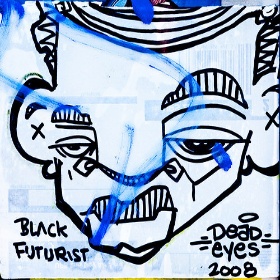 BLACK
FUTURIST
DEAD
-EYES-
2008